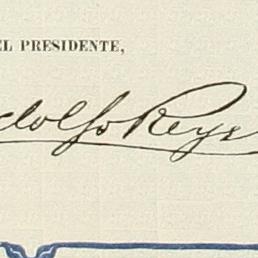 EL PRESIDENTE,
dolfo Reye